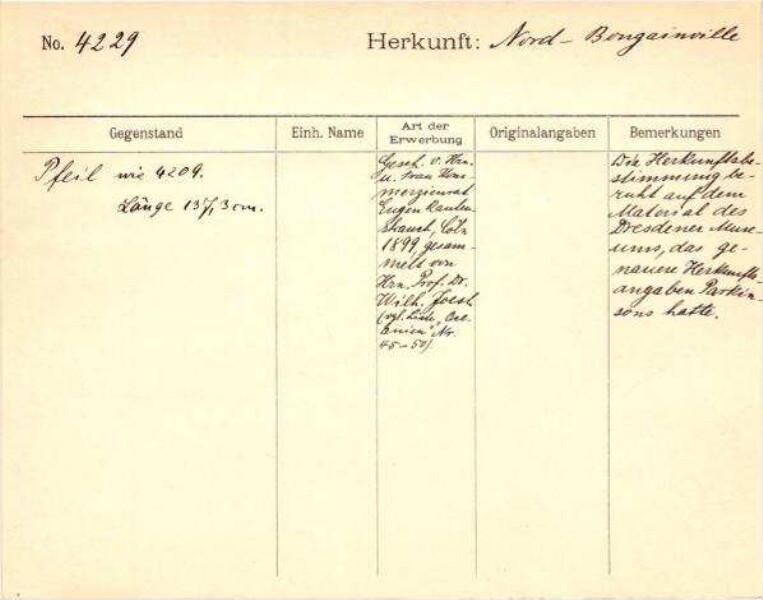 No. 4229
Herkunft: Nord-Bougainville
Gegenstand
Einh. Name
Art der
Erwerbung
Originalangaben
Bemerkungen
Pfeil wie 4209.
Länge 137,3 cm.
Gesch. v. Hrn.
u. Frau Kom-
merzienrat
Eugen Rauten-
strauch, Cöln
1899, gesam-
melt von
Hrn. Prof. Dr.
Wilh. Joest
(vgl. Liste „Oce-
anien" Nr.
45-50)
Die Herkunftsbe-
stimmung be-
ruht auf dem
Material des
Dresdener Muse-
ums, das ge-
nauere Herkunfts-
angaben Parkin-
sons hatte.